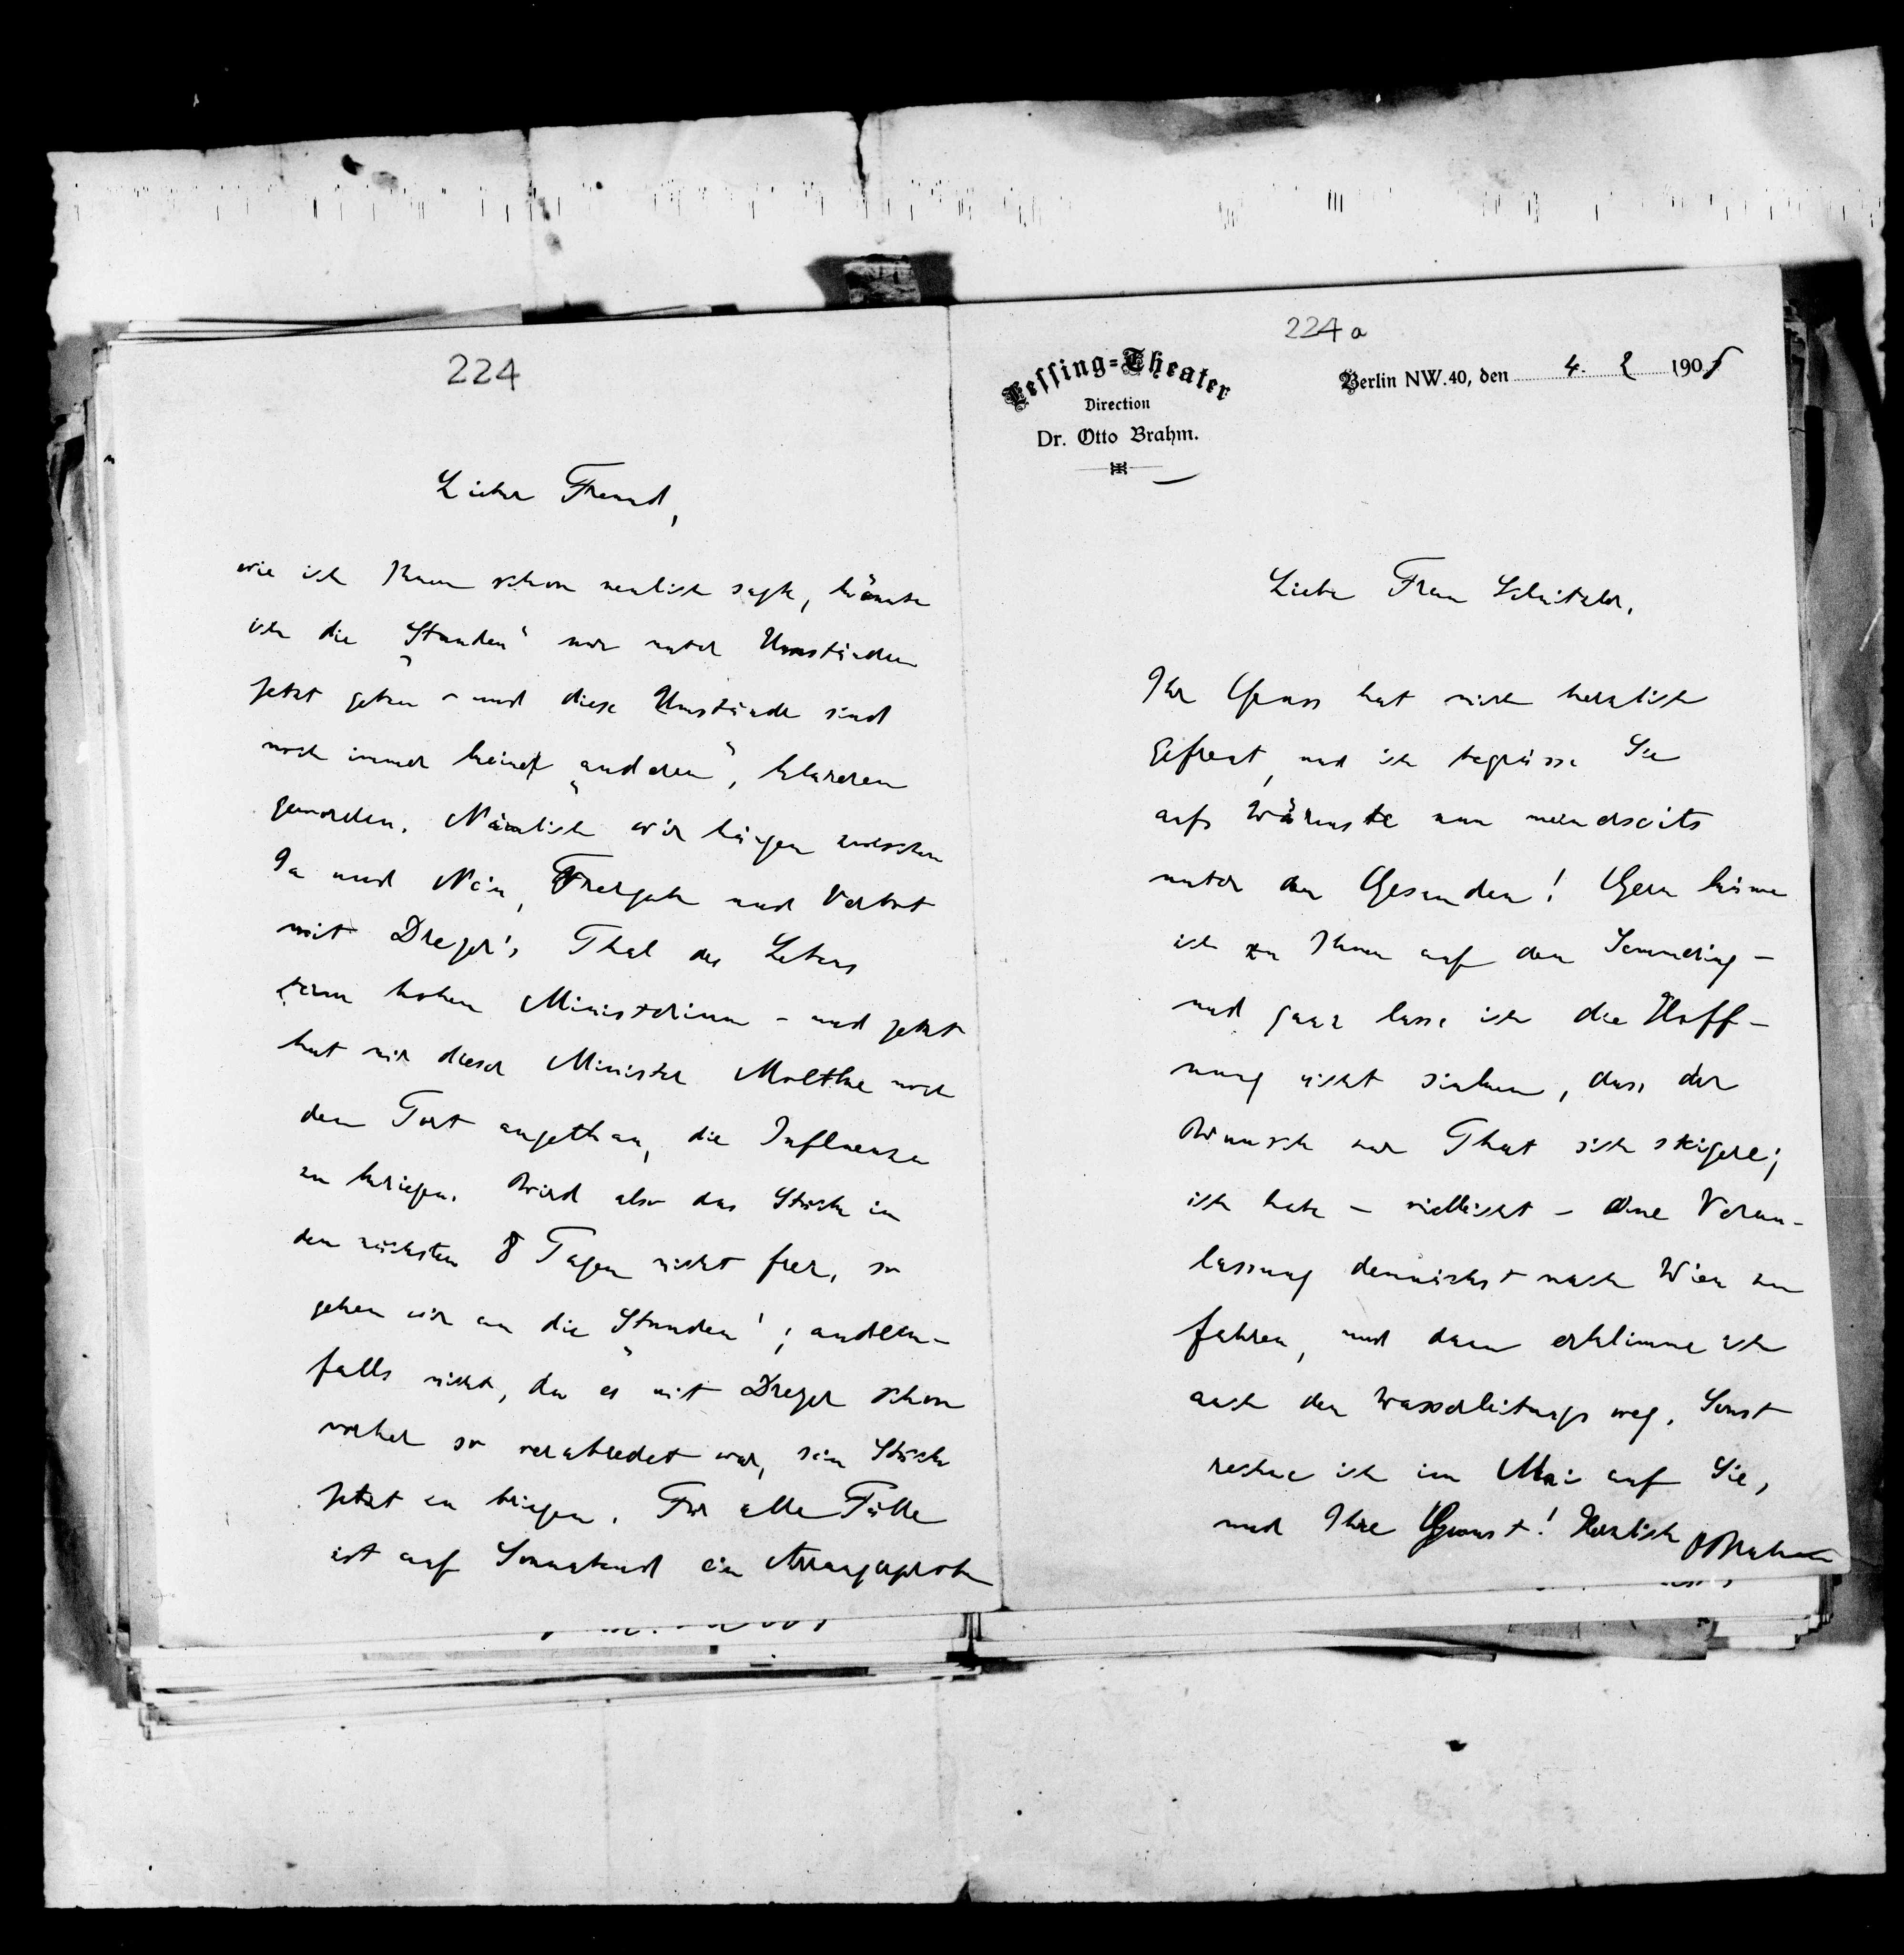 224
Lieber Freund,
wie ich Ihnen schon neulich sagte, könnte
ich die „Stunden“ nur unter Umständen
jetzt geben – und diese Umstände sind
noch immer keine „anderen“, klareren
geworden. Nämlich wir hängen zwischen
Ja und Nein, Freigabe und Verbot
mit Dreyer's Thal des Lebens
beim hohen Ministerium – und jetzt
hat mir dieser Minister Moltke noch
den Tort angethan, die Influenza
zu kriegen. Wird also das Stück in
den nächsten 8 Tagen nicht frei, so
gehen wir an die „Stunden“; andern-
falls nicht, da es mit Dreyer schon
vorher so verabredet war, sein Stück
jetzt zu bringen. Für alle Fälle
ist auf Sonnabend ein Arrangirprobe
224a
Lessing-Theater
Direction
Dr. Otto Brahm.
Berlin NW. 40, den 4. 2 1905
Liebe Frau Schnitzler,
Ihr Gruss hat mich herzlich
gefreut, und ich begrüsse Sie
aufs Wärmste nun meinerseits
unter den Gesunden! Gern käme
ich zu Ihnen auf den Semmering –
und ganz lasse ich die Hoff-
nung nicht sinken, dass der
Wunsch zur That sich steigere;
ich habe – vielleicht – eine Veran-
lassung demnächst nach Wien zu
fahren, und dann erklimme ich
auch den Wasserleitungsweg. Sonst
rechne ich im Mai auf Sie,
und Ihre Gunst! Herzlich OBrahm